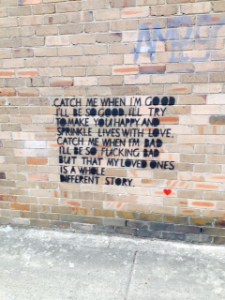 CATCH ME WHEN I'M GOOD
I'LL BE SO GOOD. I'LL TRY
TO MAKE YOU HAPPY AND
SPRINKLE LIVES WITH LOVE.
CATCH ME WHEN I'M BAD
I'LL BE SO FUCKING BAD
BUT THAT MY LOVED ONES
IS A WHOLE
DIFFERENT STORY.